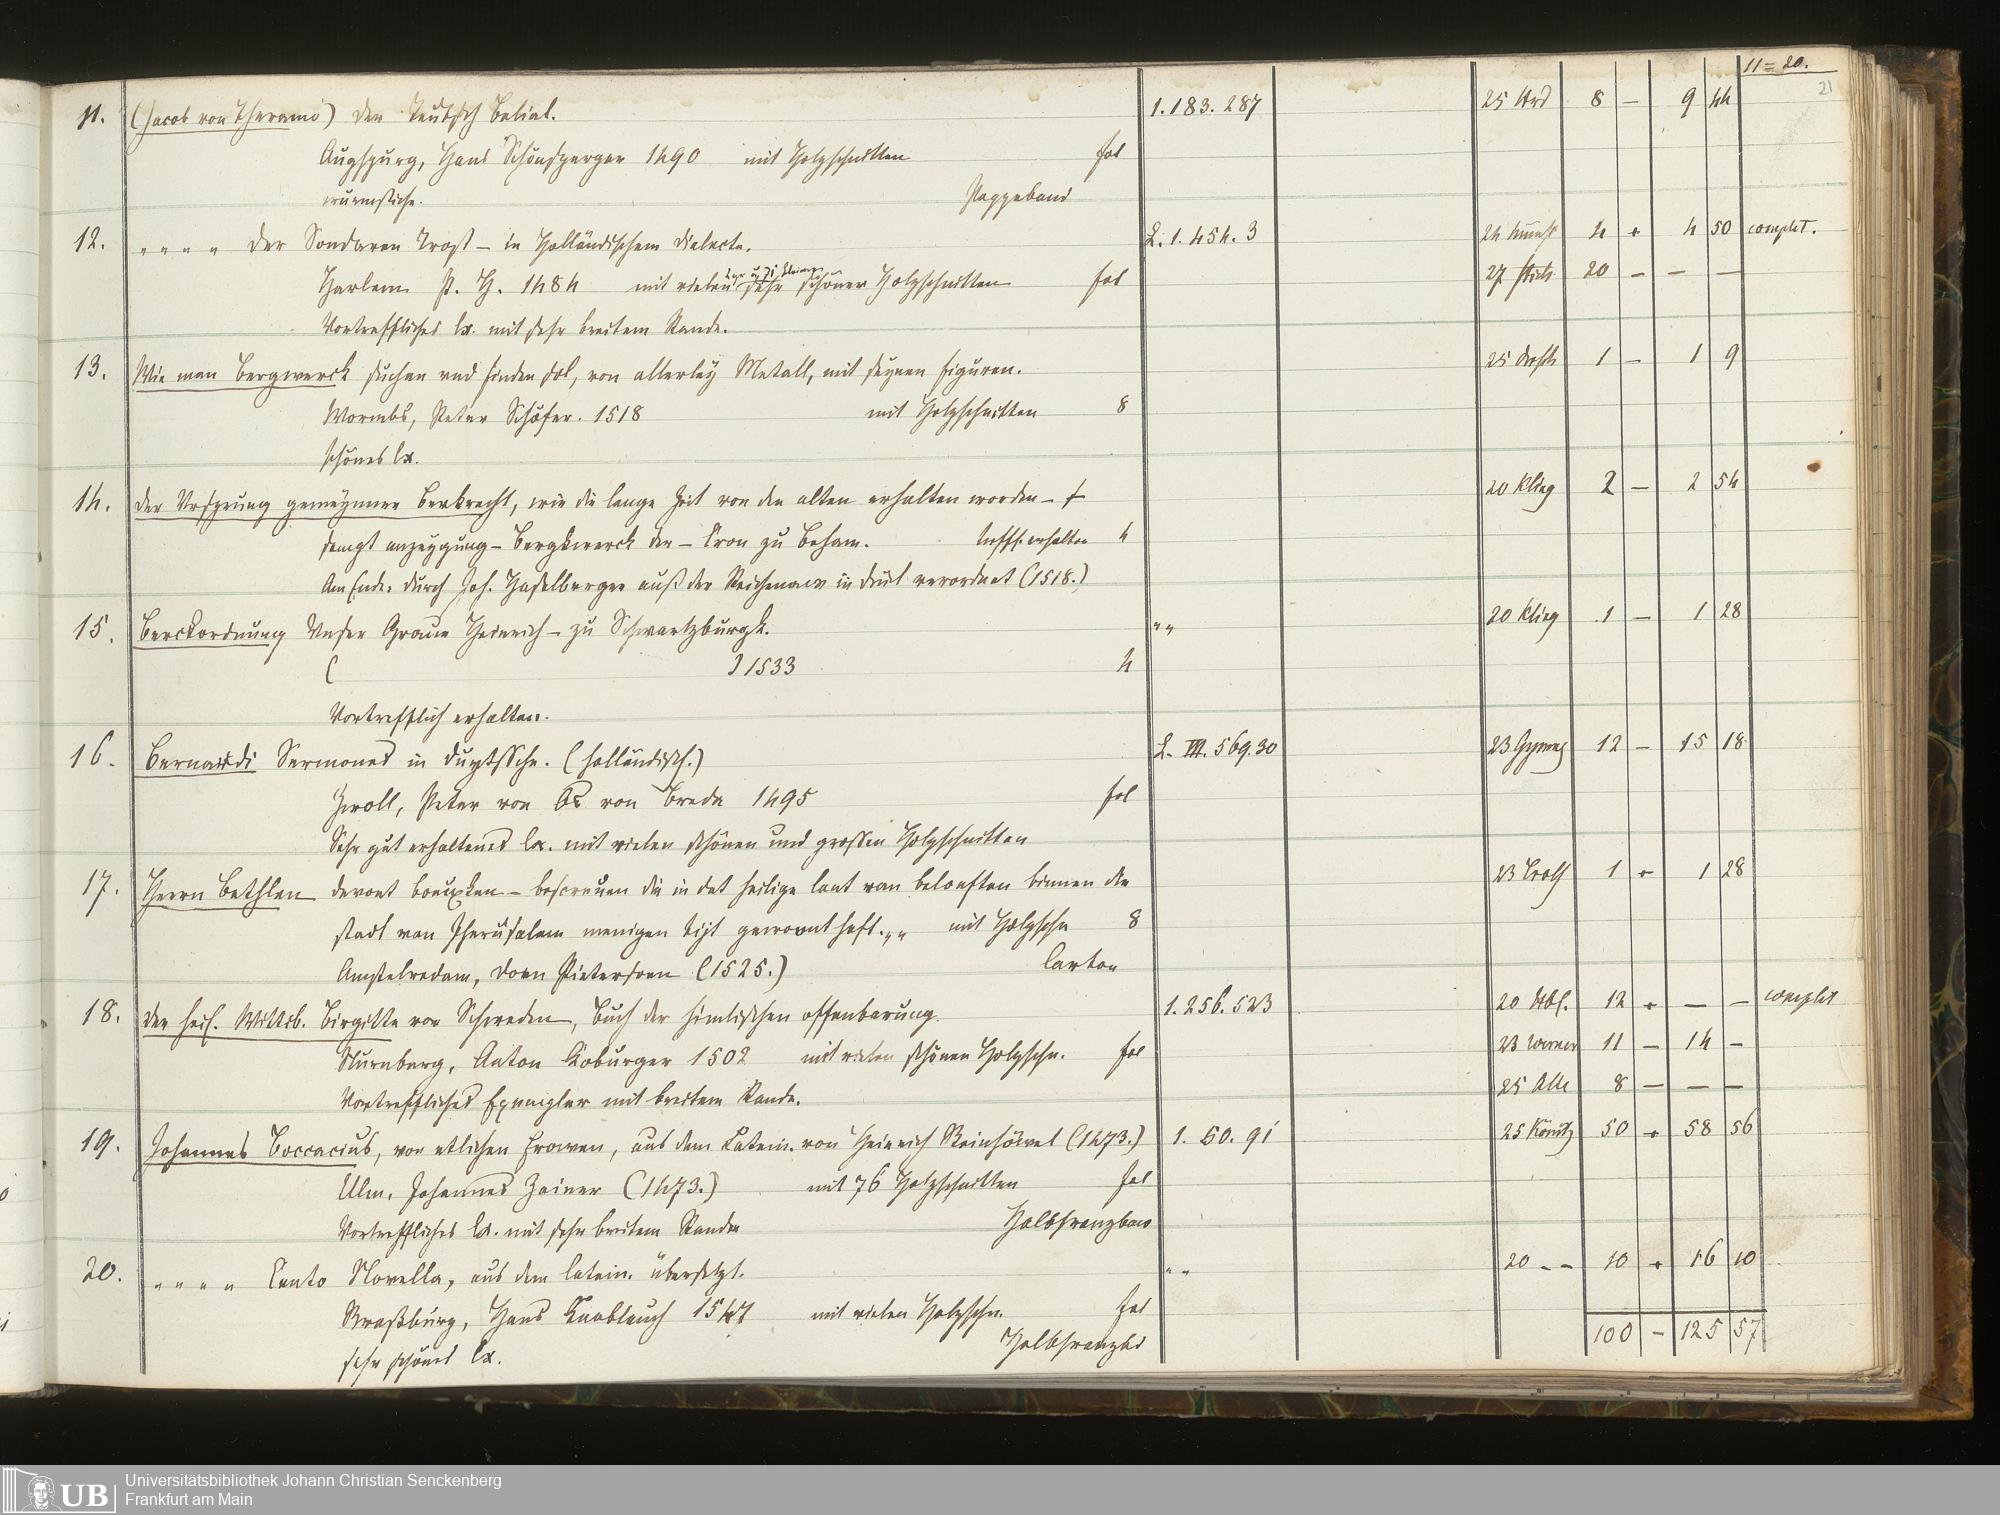 11 = 20.
21
11. (Jacob von Theramo) Der Teutsch Belial. 1.183.287 25 8 – 9 44
Augspurg, Hans Schönsperger 1490 mit Holzschnitten fol
wurmstichg. Pappeband
12. „ „ „ „ Der Sondaren Trost – in Holländischem Dialecte. L. 1. 454. 3 24 4 + 4 50 complet.
Harlem P. H. 1484 mit vielen sehr schönen Holzschnitten fol 27 20 – – –
Vortreffliches Ex. mit sehr breitem Rande.
13. Wie man Bergwerck suchen und finden sol, von allerley Metall, mit seynen figuren. 25 1 – 1 9
Wormbs, Peter Schöfer. 1518 mit Holzschnitten 8
schönes Ex.
14. Der Ursprung gemeynner Berkrecht, wie die lange Zeit von den alten erhalten worden – 20 Klieg 2 – 2 54
sampt anzeygung – Bergkwerck der – Cron zu Beham. treffl. erhalten 4
Am Ende: durch Joh. Haselberger auß der Reichenaw in druck verordnet (1518.)
15. Berckordnung Unser Graue Heinrich – zu Schwartzburgk. „ „ 20 Klieg 1 – 1 28
( ) 1533 4
Vortrefflich erhalten.
16. Bernardi Sermones in duytssche. (holländisch.) L. III. 569.30 23 12 – 15 18
Zwoll, Peter von Os von Breda 1495 fol
Sehr gut erhaltenes Ex. mit vielen schönen und grossen Holzschnitten
17. Herrn Bethlen devoet boeuxken – bescreuen die in dat heilige lant van beloeften binnen die 23 1 + 1 28
stadt van Jherusalem menigen tijt gewoont heft. „ „ mit Holzschn 8
Amstelredam, Doen Pietersoen (1525.) Carton
18. Der heil. Wittib. Birgitte von Schweden, Buch der himlischen offenbarung. 1.256.523 20 12 + – – complet
Nürnberg, Anton Koburger 1502 mit vielen schönen Holzschn. fol 23 11 – 14 –
Vortreffliches Exemplar mit breitem Rande. 25 8 – – –
19. Johannes Boccacius, von etlichen frowen, aus dem Latein. von Heinrich Steinhöwel (1473.) 1. 50. 91 25 50 + 58 56
Ulm, Johannes Zainer (1473.) mit 76 Holzschnitten fol
Vortreffliches Ex. mit sehr breitem Rande Halbfranzband
20. „ „ „ „ Cento Novella, aus dem latein. übersetzt. „ „ 20 – – 10 + 16 10
Straßburg, Hans Knoblauch mit vielen Holzschn. fol
sehr schönes Ex. Halbfranzbd
100 – 125 57
UB
Universitätsbibliothek Johann Christian Senckenberg
Frankfurt am Main